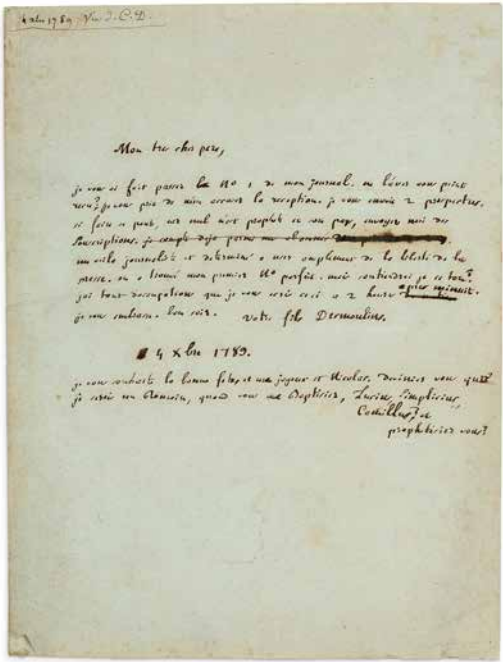 4 xbre 1789. Vie d. C. D.
Mon tres cher pere,
je vous ai fait passer le No 1 de mon Journal. ne l'avez vous point
recu? je vous prie de m'en accuser la reception. je vous envoie 2 prospectus.
si faire se peut, car nul n'est prophete en son pays, envoyez moi des
souscriptions. je compte deja parmi mes abonnés
journaliste et determine a user amplement de la liberté de la
presse. on a trouvé mon premier No parfait. mais soutiendrai je ce ton?
j'ai tant d'occupations que je vous ecris ceci a 2 heures apres minuit.
je vous embrasse. bon soir. votre fils Desmoulins.
4 Xbre 1789.
je vous souhaite la bonne fete, et un joyeux st Nicolas. deviniez vous que
je serois un Romain, quand vous me Baptisiez, Lucius, Simplicius,
Camillus? et
prophetisiez vous?